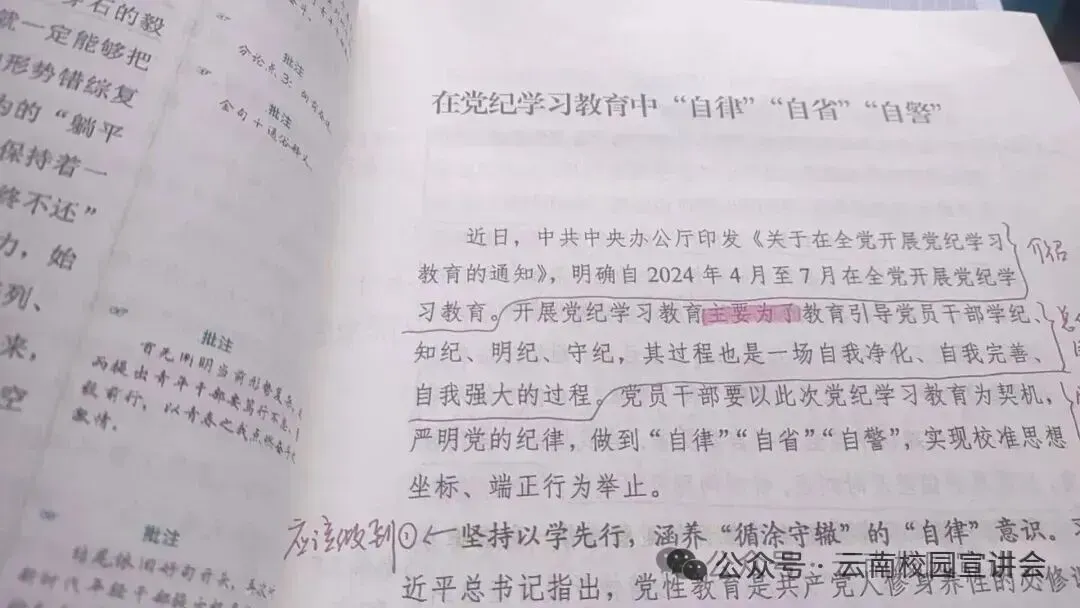 石的毅
就一定能够把
形势错综复
的“躺平
保持着一
终不还”
力，始
列、
来，
空
批注
分论点3：
批注
金句+通俗释义
批注
首先阐明当前形势复杂，
而提出青年干部要笃行不怠、
毅前行，以青春之我点燃奋斗
激情。
批注
结尾依旧好句开头，
新时代年轻干部
在党纪学习教育中“自律”“自省”“自警”
近日，中共中央办公厅印发《关于在全党开展党纪学习
教育的通知》，明确自 2024 年 4 月至 7 月在全党开展党纪学
习教育。开展党纪学习教育主要为了教育引导党员干部学纪、
知纪、明纪、守纪，其过程也是一场自我净化、自我完善、
自我强大的过程。党员干部要以此次党纪学习教育为契机，
严明党的纪律，做到“自律”“自省”“自警”，实现校准思想
坐标、端正行为举止。
介绍
应该做到①
一坚持以学先行，涵养“循涂守辙”的“自律”意识。习
近平总书记指出，党性教育是共产党人修身养性的必修
公众号：云南校园宣讲会